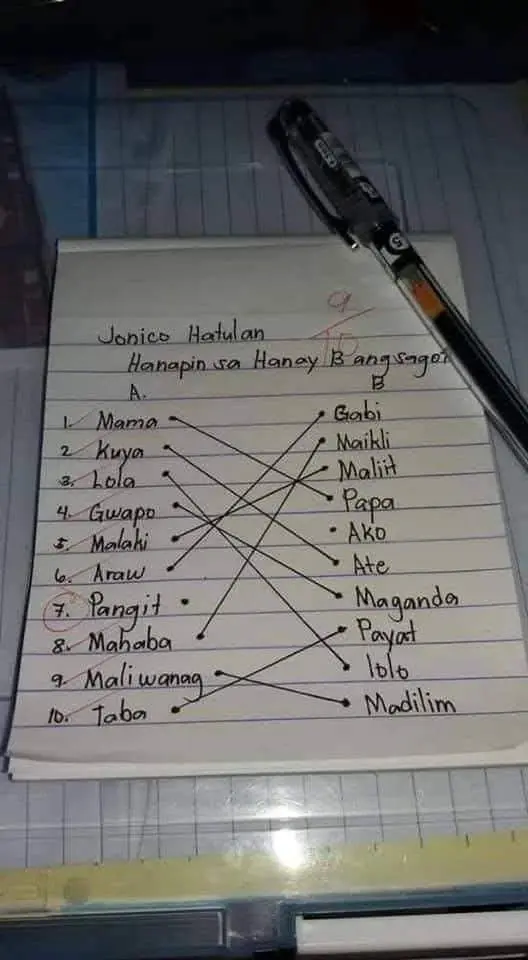 9/10
Jonico Hatulan
Hanapin sa Hanay B ang sagot
A. B
1. Mama Gabi
2. Kuya Maikli
3. Lola Maliit
4. Gwapo Papa
5. Malaki Ako
6. Araw Ate
7. Pangit Maganda
8. Mahaba Payat
9. Maliwanag lolo
10. Taba Madilim